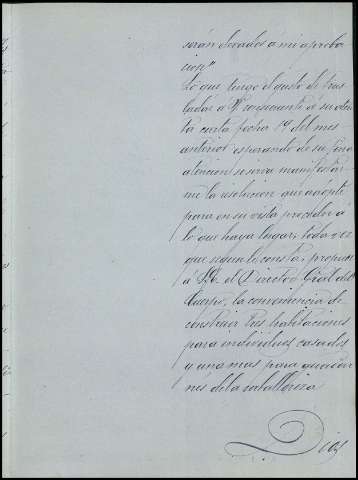 serán elevados a mi aproba
cion"
Lo que tengo el gusto de tras
ladar a V. consecuente a su aten
ta carta fecha 19 del mes
anterior esperando de su fina
atencion se sirva manifestar
me la resolucion que adopte
para en su vista proceder a
lo que haya lugar, toda vez
que segun le consta, propuse
á S.E. el Director Gral del
Cuerpo, la conveniencia de
construir tres habitaciones
para individuos casados
y una mas para guarnicio
nes de la caballeriza
Dios